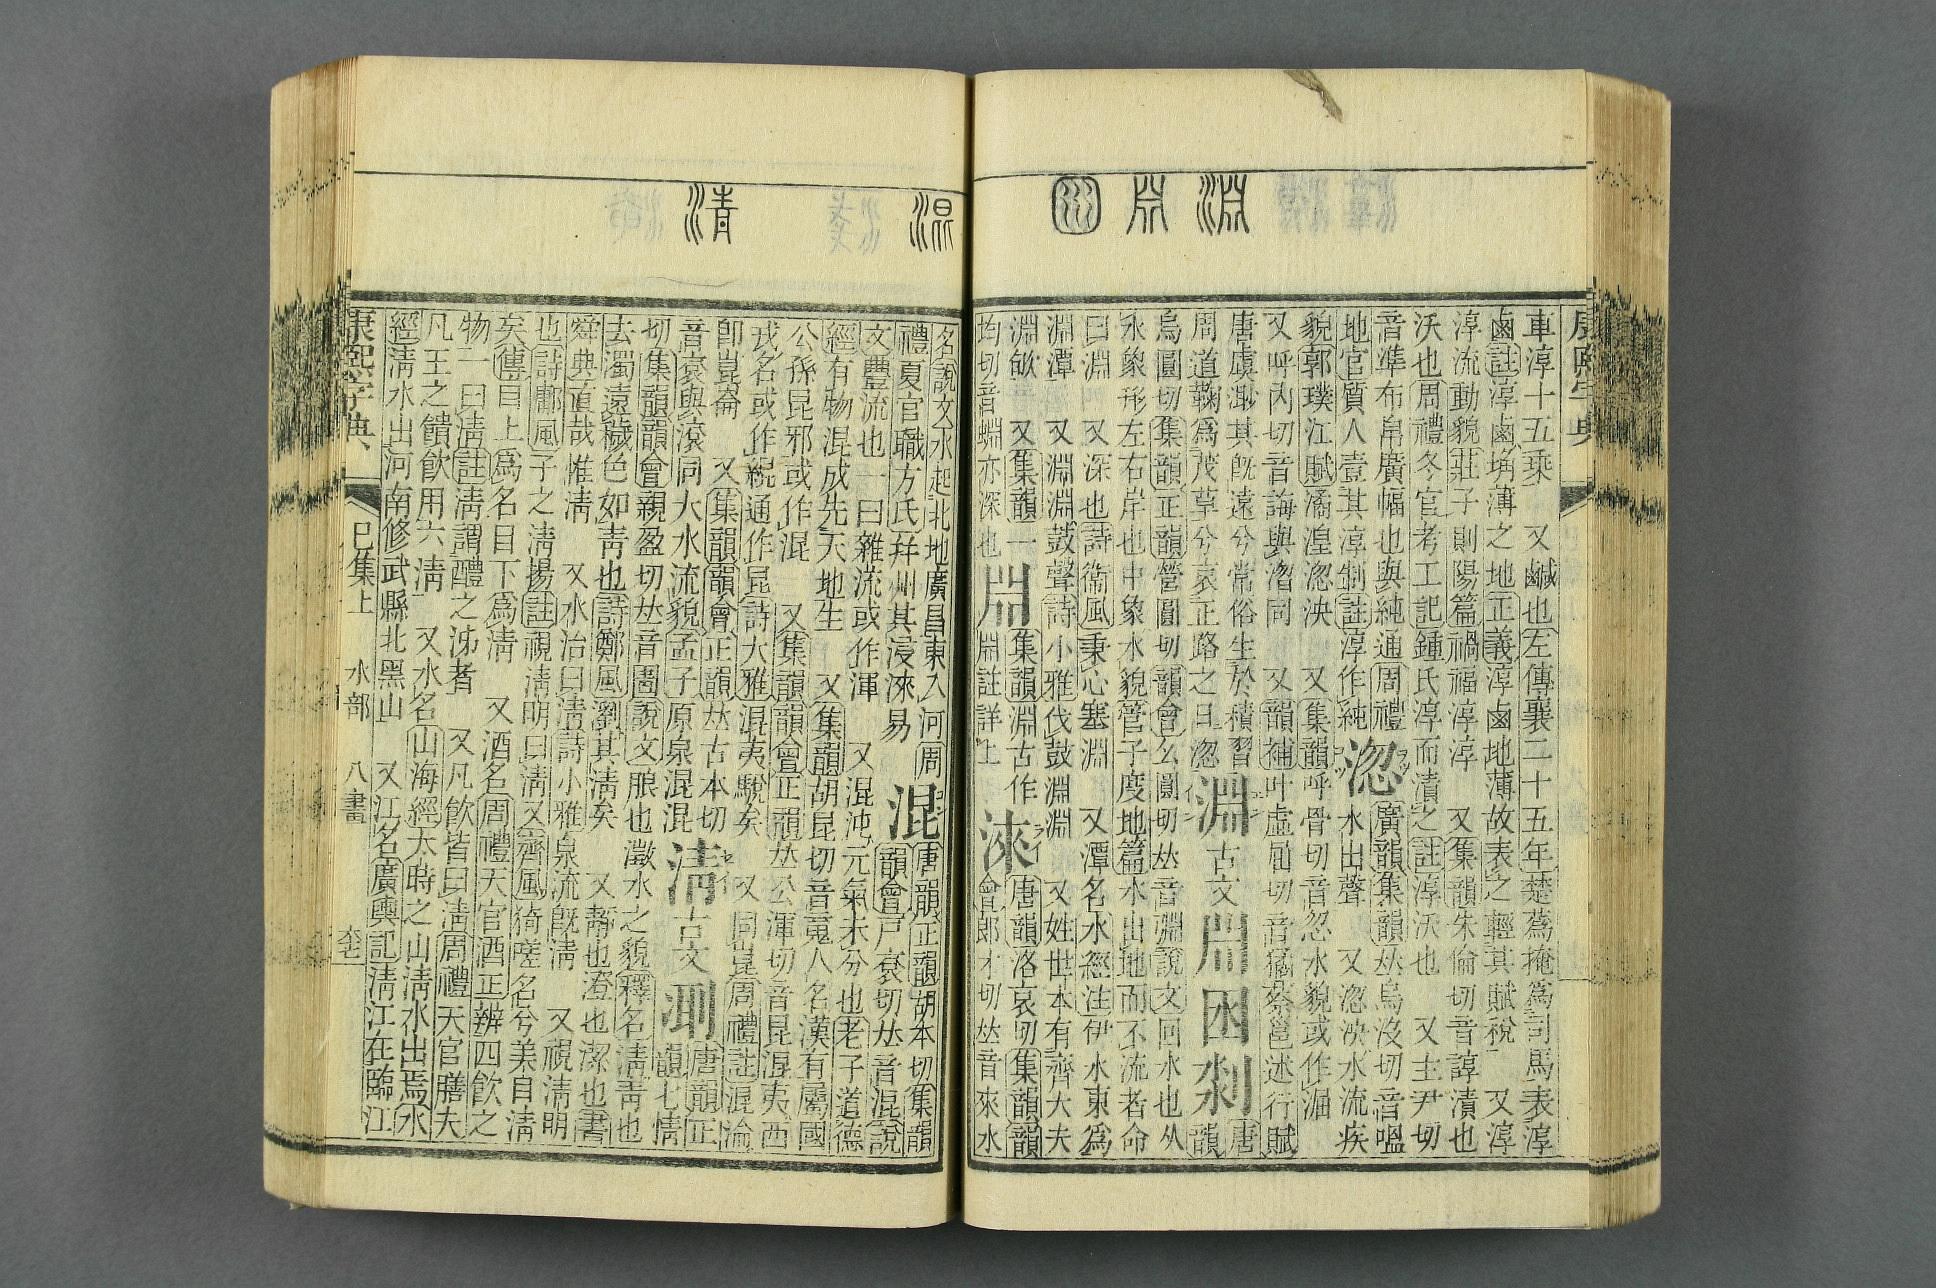 淵 𣶒 囦
車淳十五乘 又鹹也左傳襄二十五年楚蔿掩爲司馬表淳
鹵註淳鹵埆薄之地正義淳鹵地薄故表之輕其賦稅 又淳
淳流動貌莊子則陽篇禍福淳淳 又集韻朱倫切音諄漬也
沃也周禮冬官考工記鍾氏淳而漬之註淳沃也 又主尹切
音準布帛廣幅也與純通周禮
地官質人壹其淳制註淳作純
淴
廣韻集韻𠀤烏沒切音嗢
水出聲 又淴泱水流疾
貌郭璞江賦潏湟淴泱 又集韻呼骨切音忽水貌或作淈
又呼內切音誨與潪同 又韻補叶虛屈切音 蔡邕述行賦
唐虞渺其旣遠兮常俗生於積習
周道鞠爲茂草兮哀正路之日淴
淵
古文
𣶒 囦 𠛿
唐韻
烏圓切集韻正韻縈圓切韻會幺圓切𠀤音蜵說文回水也从
水象形左右岸也中象水貌管子度地篇水出地而不流者命
曰淵 又深也詩衞風秉心塞淵 又潭名水經注伊水東爲
淵潭 又淵淵鼓聲詩小雅伐鼓淵淵 又姓世本有齊大夫
淵歘 又集韻一
均切音蜵亦深也
𣶒
集韻淵古作
𣶒註詳上
淶
唐韻洛哀切集韻韻
會郞才切𠀤音來水
混 清
名說文水起北地廣昌東入河周
禮夏官職方氏幷州其浸淶易
混
唐韻正韻胡本切集韻
韻會戸袞切𠀤音混說
文豐流也一曰雜流或作渾 又混沌元氣未分也老子道德
經有物混成先天地生 又集韻胡昆切音䰟人名漢有屬國
公孫昆邪或作混 又集韻韻會正韻𠀤公渾切音昆混夷西
戎名或作緄通作昆詩大雅混夷駾矣 又同崑周禮註混淪
卽崑崙 又集韻韻會正韻𠀤古本切
音袞與滾同大水流貌孟子原泉混混
清
古文
𣷉
唐韻正
韻七情
切集韻韻會親盈切𠀤音圊說文朖也澂水之貌釋名清靑也
去濁遠穢色如靑也詩鄭風瀏其清矣 又靜也澄也潔也書
舜典直哉惟清 又水治曰清詩小雅泉流旣清 又視清明
也詩鄘風子之清揚註視清明曰清又齊風猗嗟名兮美目清
矣傳目上爲名目下爲清 又酒名周禮天官酒正辨四飮之
物一曰清註清謂醴之泲者 又凡飮皆曰清周禮天官膳夫
凡王之饋飮用六清 又水名山海經太時之山清水出焉水
經清水出河南修武縣北黑山 又江名廣輿記清江在臨江
康熙字典 巳集上 水部 八畫